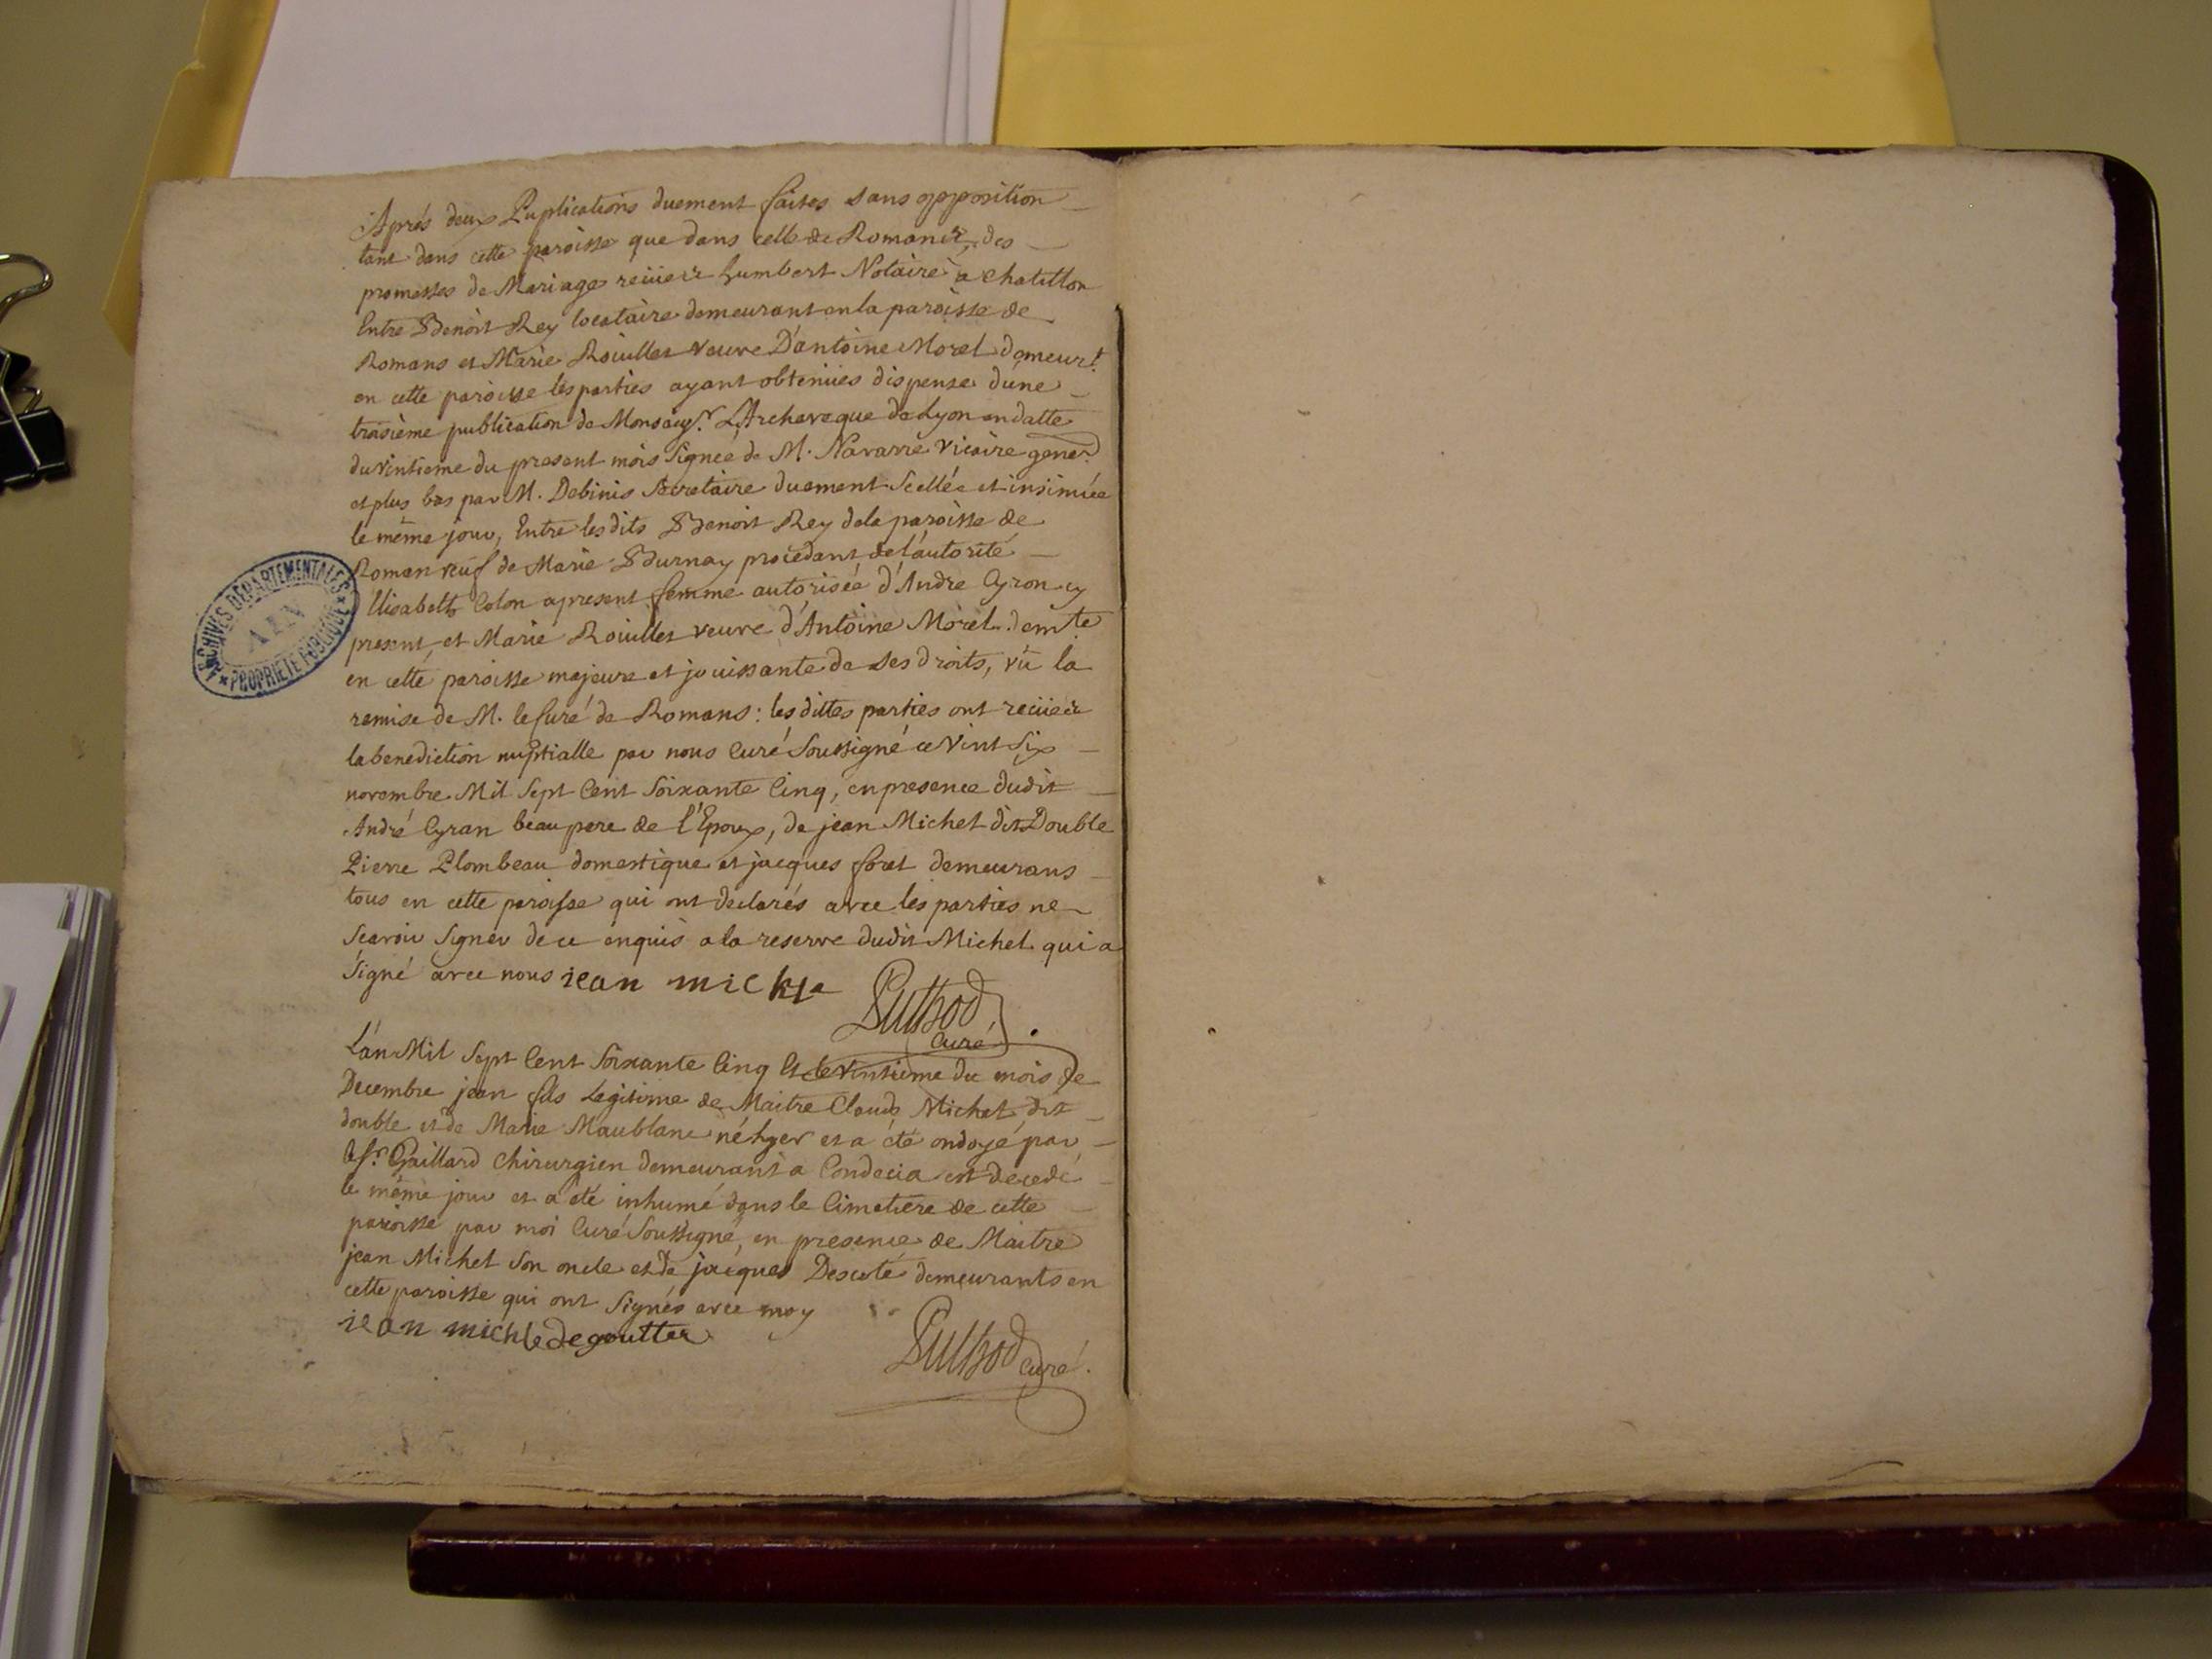 Après deux Puplications duement faites sans opposition
tant dans cette paroisse que dans celle de Romans, des
promesses de Mariage reçües Humbert Notaire a Chatillon
Entre Benoit Rey locataire demeurant en la paroisse de
Romans et Marie Roiullet veuve D'antoine Morel demeurt.
en cette paroisse les parties ayant obtenües dispense dune
troisième publication de Monseigr. L'Archeveque de Lyon en datte
du vintieme du present mois Signée de M. Navarre Vicaire gener.
et plus bas par M. Debinis Secretaire duement Scellée et insinuée
le même jour, Entre les dits Benoit Rey de la paroisse de
Roman veuf de Marie Burnay procedant de l'autorité
Elisabeth Colon apresent femme autorisée d'Andre Cyron cy
present, et Marie Roiullet veuve d'Antoine Morel demte
en cette paroisse majeure et jouissante de ses droits, vü la
remise de M. le Curé de Romans : les dittes parties ont reçües
la benediction nuptialle par nous Curé Soussigné ce Vint Six
novembre Mil Sept Cent Soixante Cinq, en presence dudit
André Cyran beaupere de l'Epoux, de jean Michel dit Double
Pierre Plombeau domestique et jacques foret demeurans
tous en cette paroisse qui ont declarés avec les parties ne
Scavoir Signer de ce enquis a la reserve dudit Michel qui a
Signé avec nous jean michle
Puthod
Curé
L'an Mil Sept Cent Soixante Cinq Et le vintieme du mois de
Decembre jean fils Legitime de Maitre Claude Michel dit
double et de Marie Maublanc né hyer et a été ondoyé par
le Sr. Gaillard Chirurgien demeurant a Condecia est decedé
le même jour et a été inhumé dans le Cimetiere de cette
paroisse par moi Curé Soussigné, en presence de Maitre
jean Michel Son oncle et de jacques Descoté demeurants en
cette paroisse qui ont Signés avec moy
jean michle degoutter
Puthod Curé.
ARCHIVES DEPARTEMENTALES
AIN
PROPRIETE PUBLIQUE